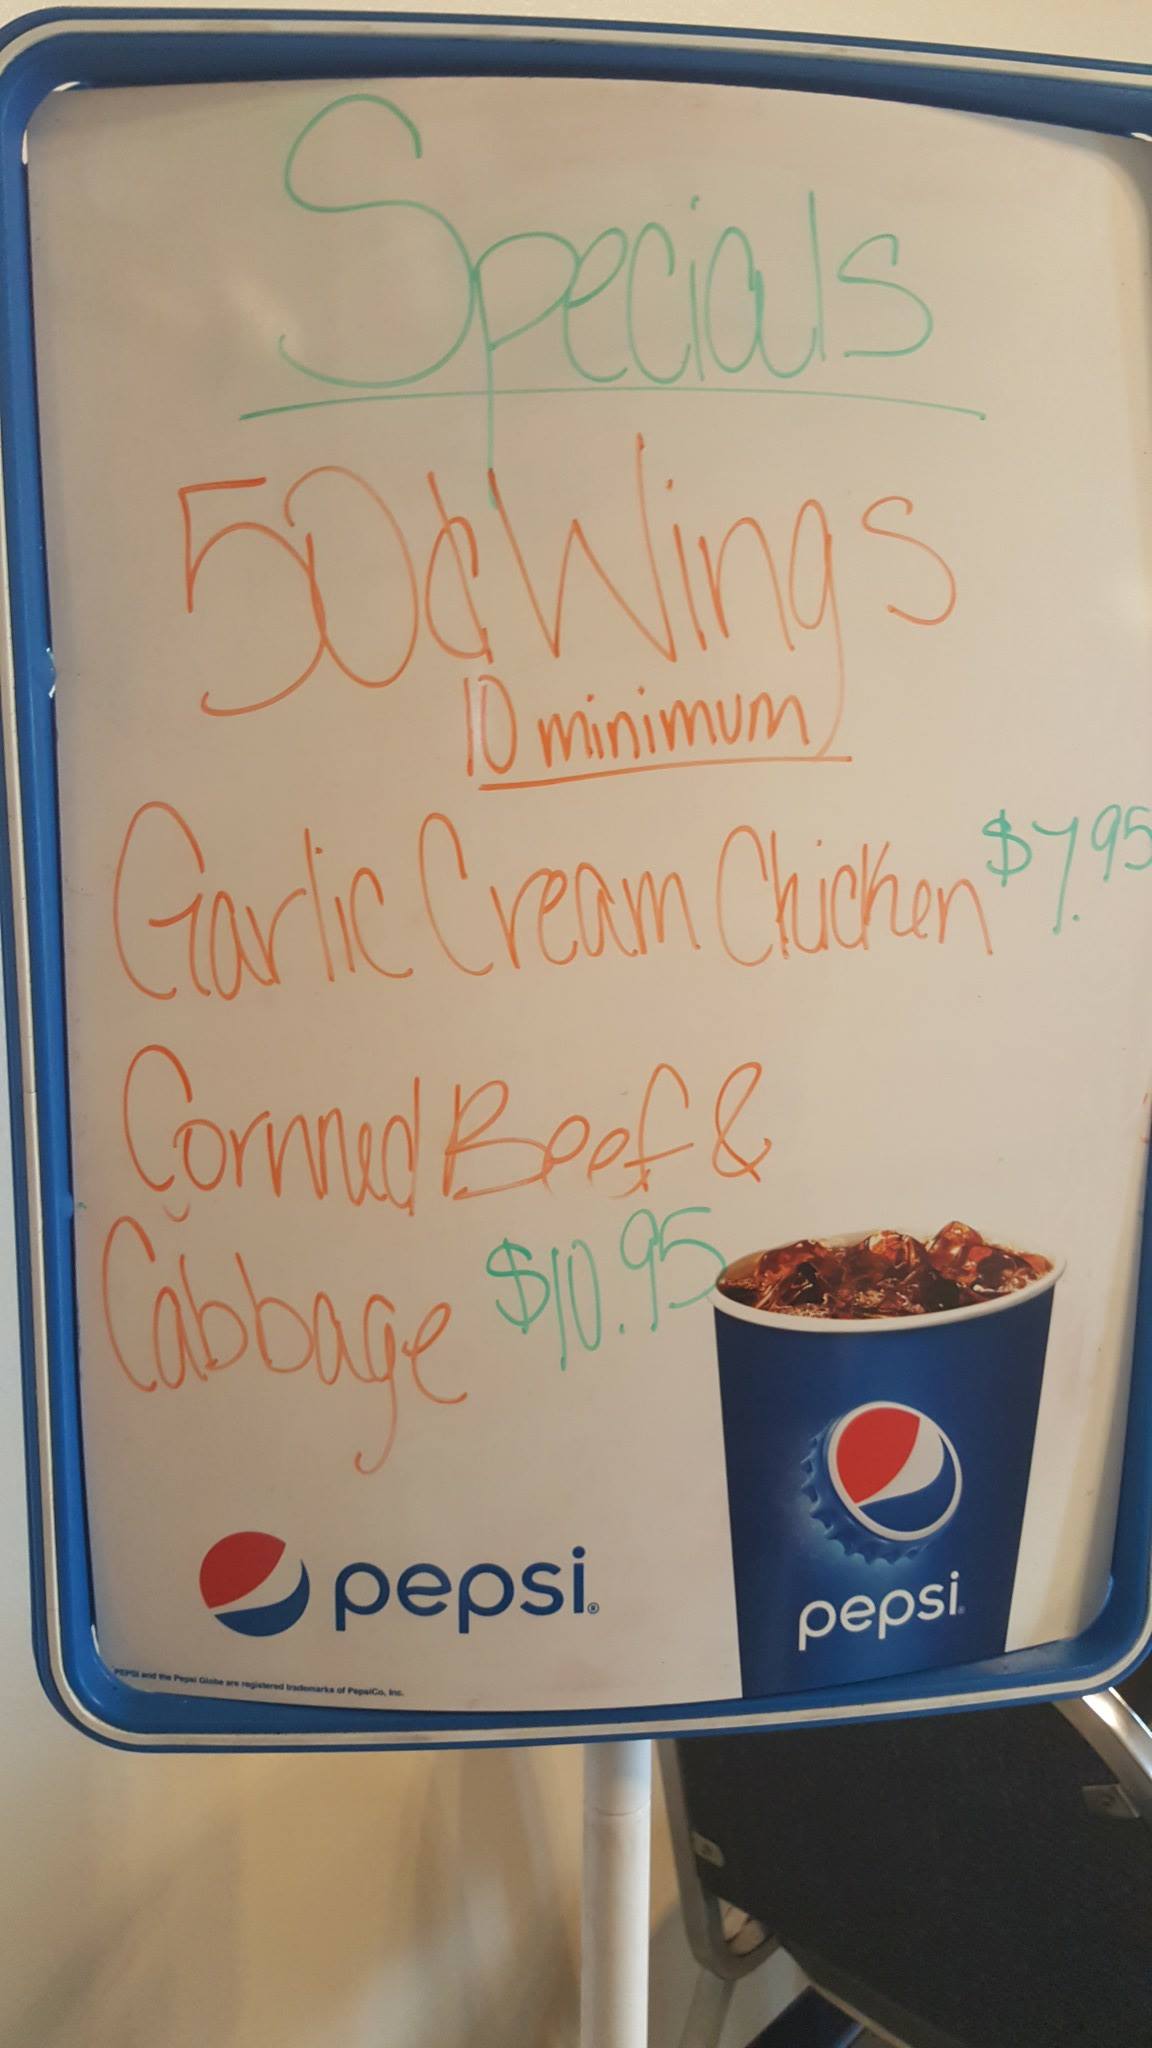 Specials
50¢ Wings
10 minimum
Garlic Cream Chicken $7.95
Cornned Beef &
Cabbage $10.95
pepsi®
pepsi
PEPSI and the Pepsi Globe are registered trademarks of PepsiCo, Inc.